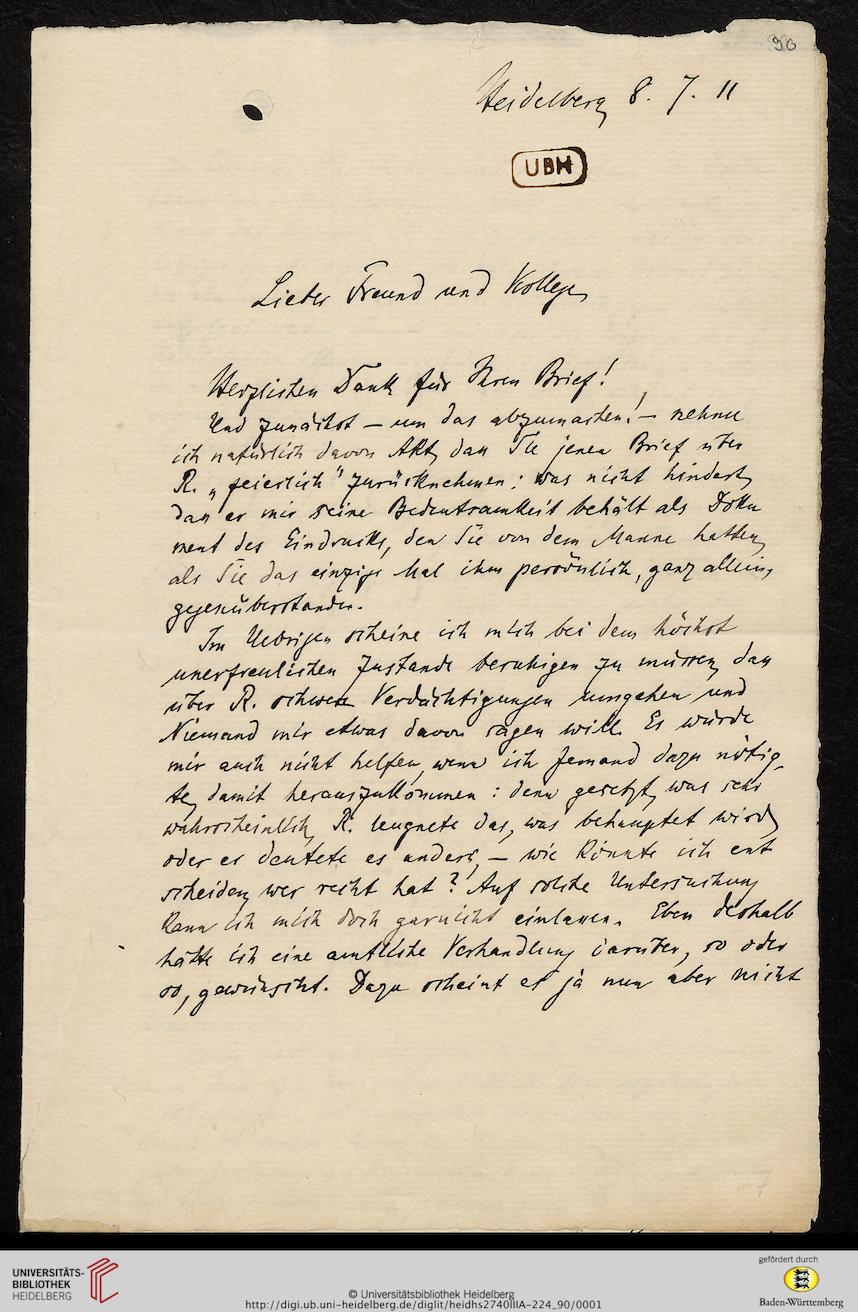 90
Heidelberg 8. 7. 11
UBH
Lieber Freund und Kollege,
Herzlichen Dank für Ihren Brief!
Und zunächst – um das abzumachen! – nehme
ich natürlich davon Akt, dass Sie jenen Brief über
R. „feierlich" zurücknehmen: was nicht hindert,
dass er mir seine Bedeutsamkeit behält als Doku
ment des Eindrucks, den Sie von dem Manne hatten,
als Sie das einzige Mal ihm persönlich, ganz allein,
gegenüberstanden.
Im Uebrigen scheine ich mich bei dem höchst
unerfreulichen Zustande beruhigen zu müssen, dass
über R. schwere Verdächtigungen umgehen und
Niemand mir etwas davon sagen will. Es würde
mir auch nicht helfen, wenn ich Jemand dazu nötig
te, damit herauszukommen: denn gesetzt, was sehr
wahrscheinlich, R. leugnete das, was behauptet wird,
oder er deutete es anders, – wie könnte ich ent
scheiden, wer recht hat? Auf solche Untersuchung
kann ich mich doch garnicht einlassen. Eben deshalb
hätte ich eine amtliche Verhandlung darüber, so oder
so, gewünscht. Dazu scheint es ja nun aber nicht
UNIVERSITÄTS-
BIBLIOTHEK
HEIDELBERG
© Universitätsbibliothek Heidelberg
http://digi.ub.uni-heidelberg.de/diglit/heidhs2740IIIA-224_90/0001
gefördert durch
Baden-Württemberg